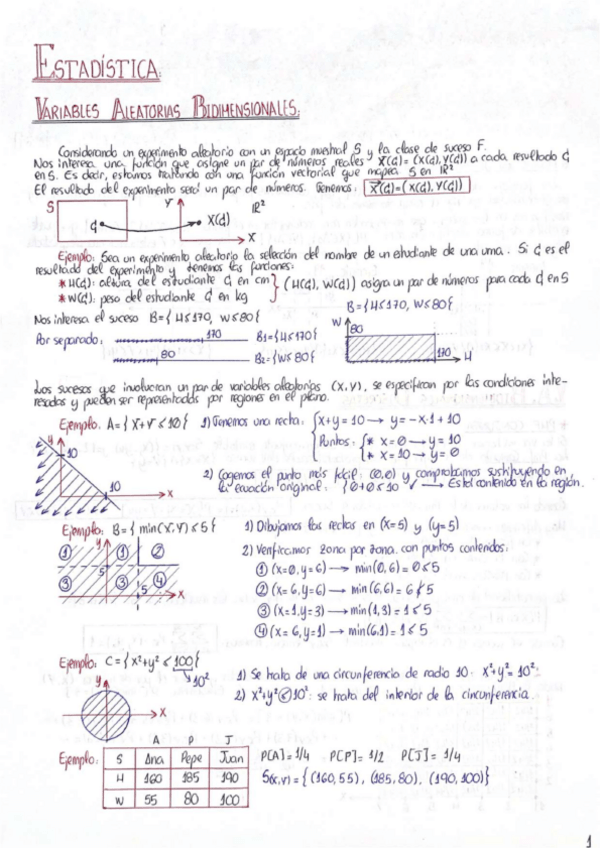 ESTADÍSTICA:
VARIABLES ALEATORIAS BIDIMENSIONALES.
Considerando un experimento aleatorio con un espacio muestral S y la clase de suceso F.
Nos interesa una función que asigne un par de números reales X(ζ)=(X(ζ),Y(ζ)) a cada resultado ζ
en S. Es decir, estamos tratando con una función vectorial que mapea S en ℝ²
El resultado del experimento será un par de números. Tenemos: X(ζ)=(X(ζ), Y(ζ))
S ζ Y X(ζ) ℝ² X
Ejemplo: Sea un experimento aleatorio la selección del nombre de un estudiante de una urna. Si ζ es el
resultado del experimento y tenemos las funciones:
* H(ζ): altura del estudiante ζ en cm
* W(ζ): peso del estudiante ζ en kg
(H(ζ), W(ζ)) asigna un par de números para cada ζ en S
Nos interesa el suceso B={H≤170, W≤80}
B={H≤170, W≤80}
Por separado: 170 B₁={H≤170}
80 B₂={W≤80}
W 80 170 H
Los sucesos que involucran un par de variables aleatorias (X,Y), se especifican por las condiciones inte-
resadas y pueden ser representados por regiones en el plano.
Ejemplo: A={X+Y≤10} 1) Tenemos una recta: x+y=10 → y=-x+10
Puntos: * x=0 → y=10
* x=10 → y=0
y 10 10 x
2) Cogemos el punto más fácil: (0,0) y comprobamos sustituyendo en
la ecuación original: {0+0≤10 ✓ → Está contenido en la región.
Ejemplo: B={min(X,Y)≤5} 1) Dibujamos las rectas en (x=5) y (y=5)
2) Verificamos zona por zona con puntos contenidos:
① (x=0,y=6) → min(0,6)=0≤5
② (x=6,y=6) → min(6,6)=6≰5
③ (x=1,y=3) → min(1,3)=1≤5
④ (x=6,y=1) → min(6,1)=1≤5
y ① ① ② 5 ③ ③ ④ 5 x
Ejemplo: C={x²+y²≤100} 10²
1) Se trata de una circunferencia de radio 10. x²+y²=10²
2) x²+y²≤10²: se trata del interior de la circunferencia.
y x
A P J
Ejemplo: S Ana Pepe Juan
H 160 185 190
W 55 80 100
P[A]=1/4 P[P]=1/2 P[J]=1/4
S(X,Y)={(160,55), (185,80), (190,100)}
1